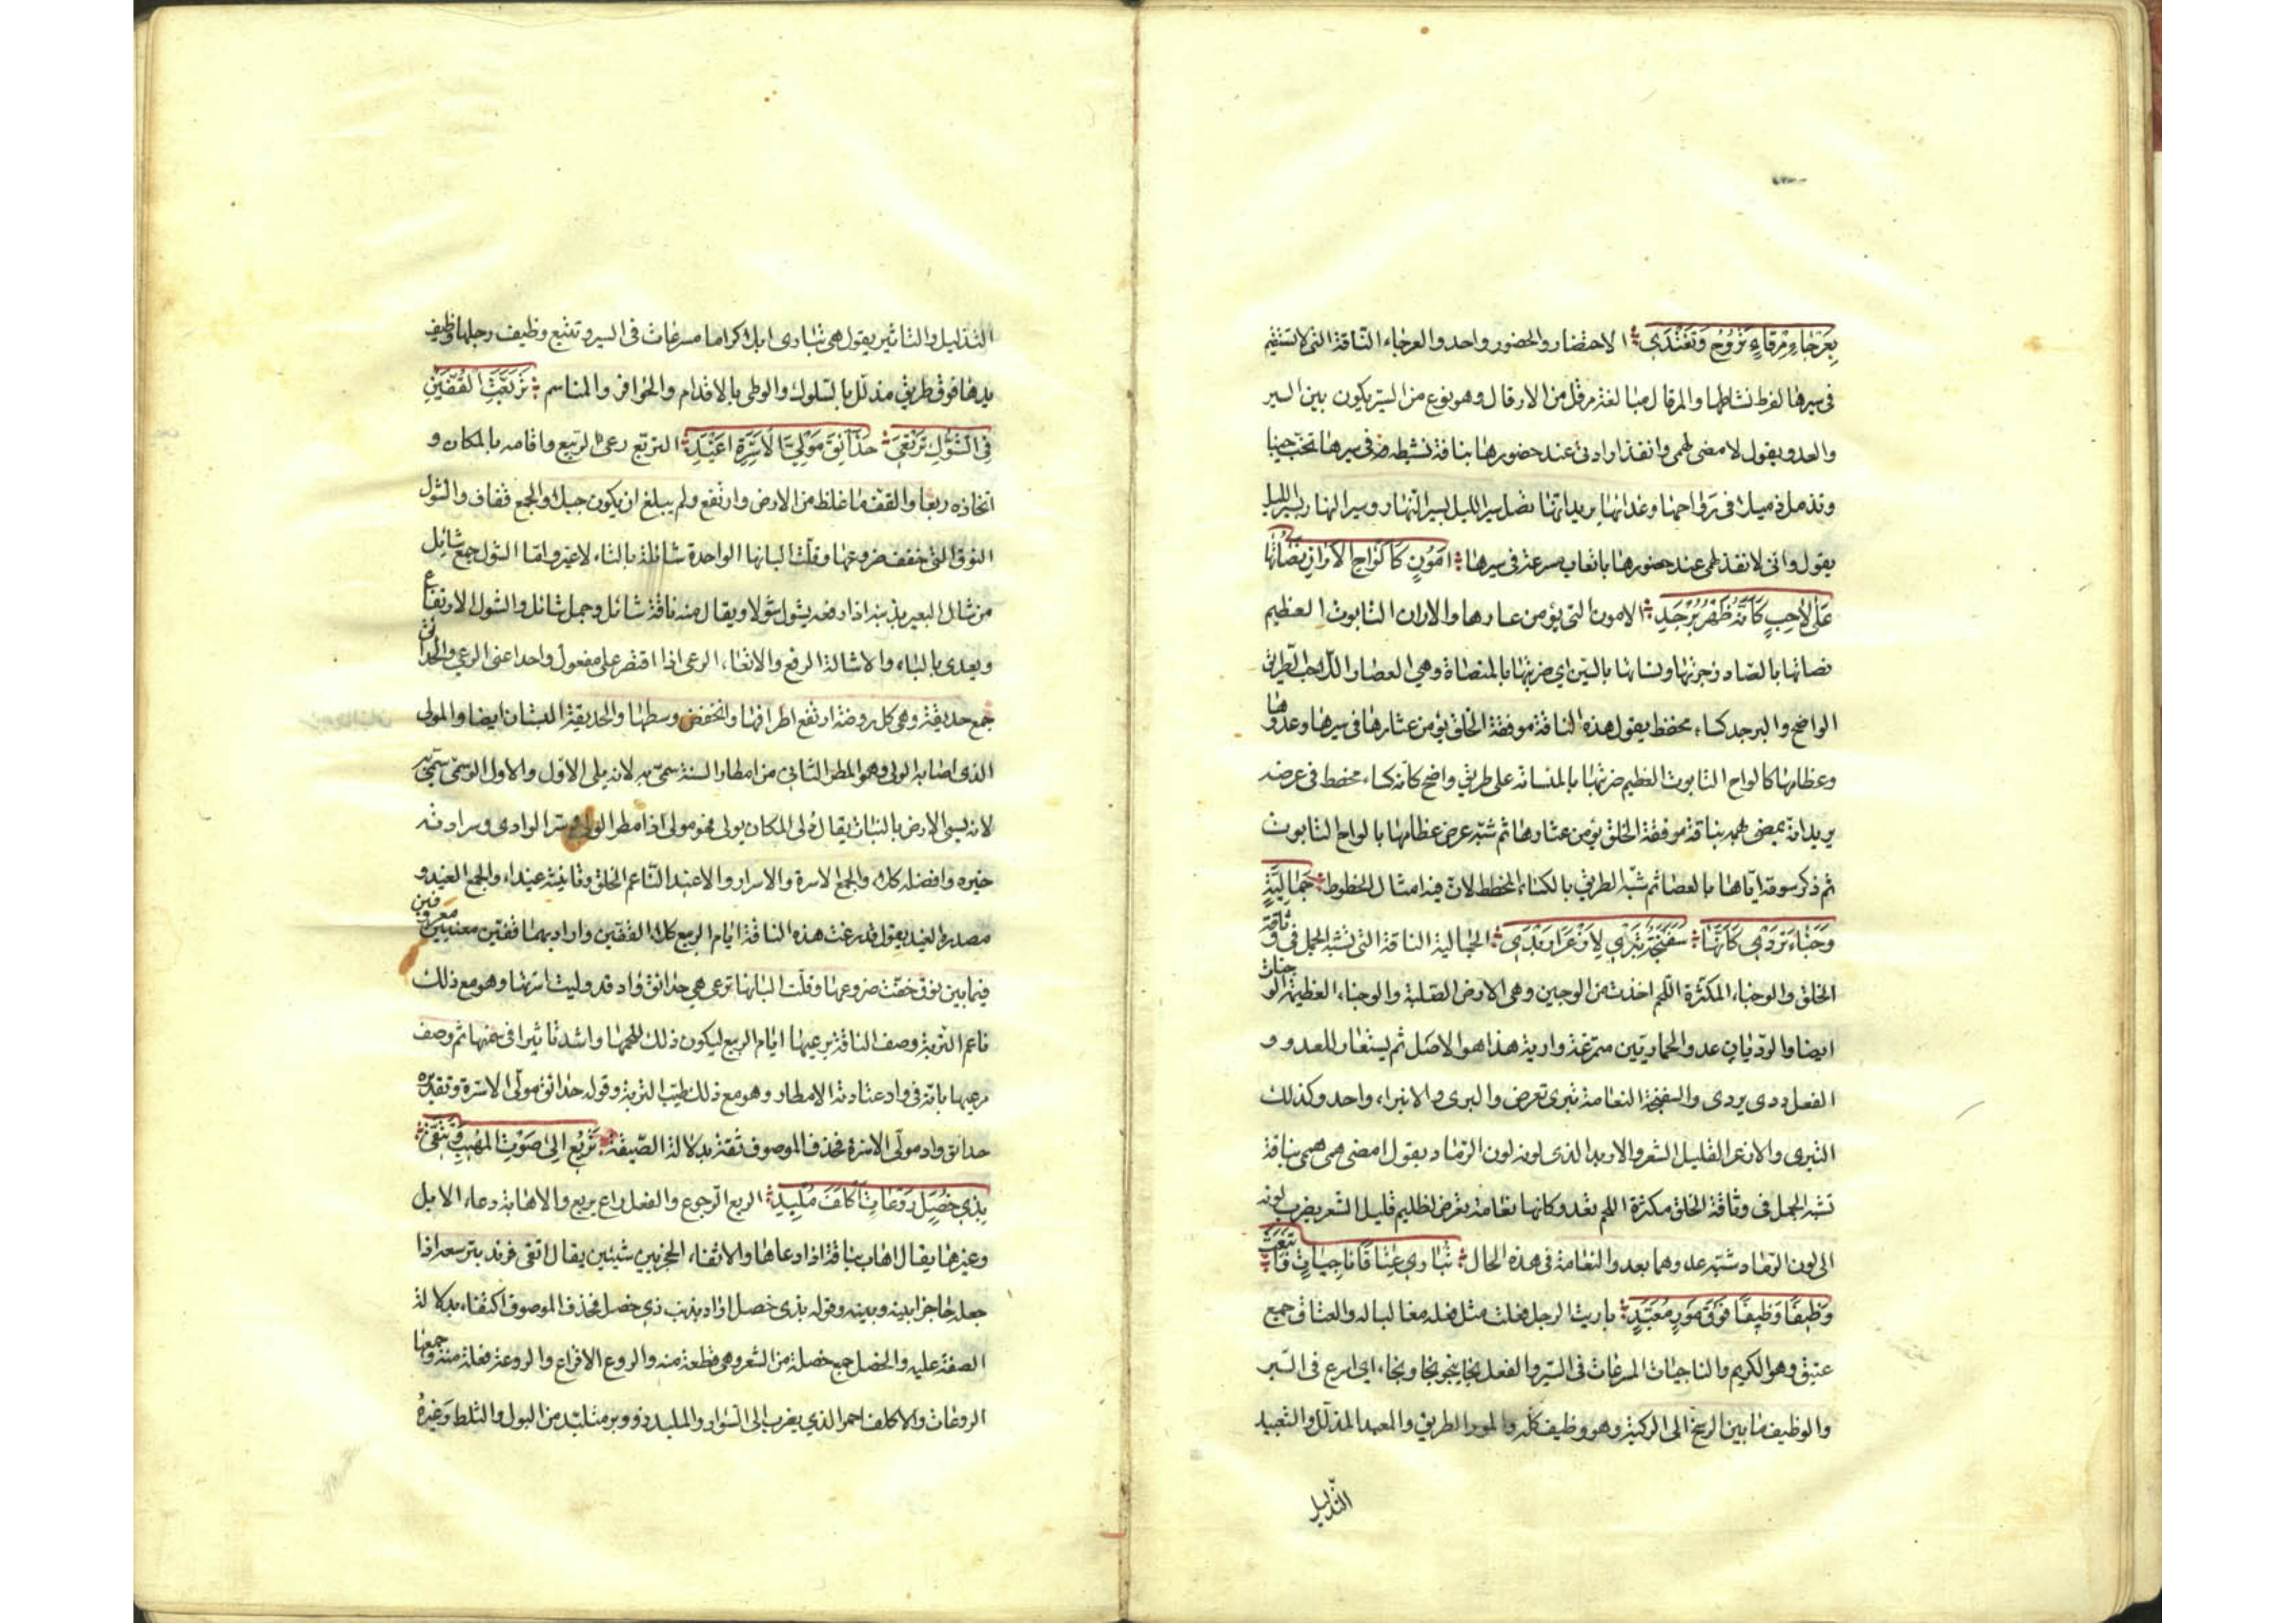 بِعَرْجَاءَ مِرْقَالٍ تَرُوحُ وَتَغْتَدِي الاحتضار والحضور واحد والعرجاء الناقة التي لا تستقيم
في سيرها لفرط نشاطها والمرقال مبالغة مرقل من الارقال وهو نوع من السير يكون بين السير
والعدو يقول لامضى لهمى وانفذ ارادتى عند حضورها بناقة نشيطة في سيرها تخب خببا
وتذمل ذميلا في رواحها وغدائها يريد انها تصل سير الليل بسير النهار وسير النهار بسير الليل
يقول وانى لانفذ همى عند حضورها باتعاب سرعة في سيرها اَمُونٍ كَاَلْوَاحِ الْاَرَانِ نَصَأْتُهَا
عَلَى لَاحِبٍ كَاَنَّهُ ظَهْرُ بُرْجُدِ الامون التي يؤمن عثارها والاران التابوت العظيم
نصاتها بالصاد زجرتها ونساتها بالسين اي ضربتها بالمنصاة وهي العصا واللاحب الطريق
الواضح والبرجد كساء مخطط يقول هذه الناقة موفقة الخلق يؤمن عثارها في سيرها وعدوها
وعظامها كالواح التابوت العظيم ضربتها بالمنساة على طريق واضح كانه كساء مخطط في عرضه
يريد انه يمضى همه بناقة موفقة الخلق يؤمن عثارها ثم شبه عرض عظامها بالواح التابوت
ثم ذكر سوقه اياها بالعصا ثم شبه الطريق بالكساء المخطط لان فيه امثال الخطوط جَمَالِيَّةٍ
وَجْنَاءَ تَرْدِي كَاَنَّهَا سَفَنَّجَةٌ تَبْرِي لِاَزْعَرَ اَرْبَدِ الجمالية الناقة التي تشبه الجمل في وثاقة
الخلق والوجناء المكتنزة اللحم اخذت من الوجين وهي الارض الصلبة والوجناء العظيمة الوجنات
ايضا والرديان عدو الحمار بين متمرغه واريه هذا هو الاصل ثم يستعار للعدو و
الفعل ردى يردى والسفنجة النعامة تبرى تعرض والبرى والانبراء واحد وكذلك
التبرى والازعر القليل الشعر والاربد الذى لونه لون الرماد يقول امضى همى بناقة
تشبه الجمل في وثاقة الخلق مكتنزة اللحم تعدو كانها نعامة تعرض لظليم قليل الشعر يضرب لونه
الى لون الرماد شبه عدوها بعدو النعامة في هذه الحال تُبَارِي عِتَاقًا نَاجِيَاتٍ وَاَتْبَعَتْ
وَظِيفًا وَظِيفًا فَوْقَ مَوْرٍ مُعَبَّدِ باريت الرجل فعلت مثل فعله مغالبا له والعتاق جمع
عتيق وهو الكريم والناجيات المسرعات في السير والفعل نجا ينجو نجا ونجاء اي اسرع في السير
والوظيف ما بين الرسغ الى الركبة وهو وظيف كله والمور الطريق والمعبد المذلل والتعبيد
التذليل
التذليل والتاثير يقول هى تبارى ابلا كراما مسرعات في السير وتتبع وظيف رجلها وظيف
يدها فوق طريق مذلل بالسلوك والوطى بالاقدام والحوافر والمناسم تَرَبَّعَتِ الْقُفَّيْنِ
فِي الشَّوْلِ تَرْتَعِي حَدَائِقَ مَوْلِيِّ الْاَسِرَّةِ اَغْيَدِ التربع رعى الربيع واقامة بالمكان و
اتخاذه ربعا والقف ما غلظ من الارض وارتفع ولم يبلغ ان يكون جبلا والجمع قفاف والشول
النوق التي خفت ضروعها وقلت البانها الواحدة شائلة بالتاء لا غير واما الشول جمع شائل
من شال البعير بذنبه اذا رفعه يشول شولا ويقال منه ناقة شائل وجمل شائل والشول الارتفاع
ويعدى بالباء والاشالة الرفع والارتعاء الرعى اذا اقتصر على مفعول واحد اعنى الرعى والحدائق
جمع حديقة وهى كل روضة ارتفع اطرافها وانخفض وسطها والحديقة البستان ايضا والمولى
الذى اصابه الولى وهو المطر الثانى من امطار السنة سمى به لانه يلى الاول والاول الوسمى سمى به
لانه يسم الارض بالنبات يقال ولى المكان يولى فهو مولى اذا مطر الولى وسر الوادى وسرارته
خيره وافضله كلا والجمع الاسرة والاسرار والاغيد الناعم الخلق وتانيثه غيداء والجمع الغيد و
مصدره الغيد يقول قد رعت هذه الناقة ايام الربيع كلا القفين واراد بهما قفين معينين معروفين
فيما بين نوق خفت ضروعها وقلت البانها ترعى هى حدائق واد قد وليت اسرتها وهو مع ذلك
ناعم التربة وصف الناقة برعيها ايام الربيع ليكون ذلك للحمها واشد تاثيرا في سمنها ثم وصف
مرعيها بانه في واد اعتادته الامطار وهو مع ذلك طيب التربة وقوله حدائق مولى الاسرة وتقديره
حدائق واد مولى الاسرة فحذف الموصوف ثقة بدلالة الصفة تَرِيعُ اِلَى صَوْتِ الْمُهِيبِ وَتَتَّقِي
بِذِي خُصَلٍ رَوْعَاتِ اَكْلَفَ مُلْبِدِ الريع الرجوع والفعل راع يريع والاهابة دعاء الابل
وغيرها يقال اهاب بناقة اذا دعاها والاتقاء الحجز بين شيئين يقال اتقى قرنه بترسه اذا
جعله حاجزا بينه وبينه وقوله بذى خصل اراد بذنب ذى خصل فحذف الموصوف اكتفاء بدلالة
الصفة عليه والخصل جمع خصلة من الشعر وهى قطعة منه والروع الافزاع والروعة فعلة منه وجمعها
الروعات والاكلف احمر الذي يضرب الى السواد والملبد ذو وبر متلبد من البول والثلط وغيره